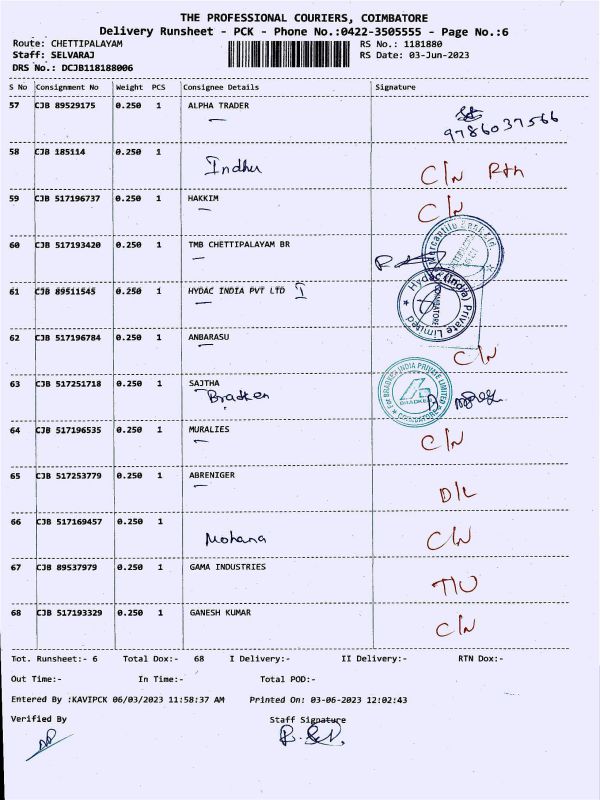 THE PROFESSIONAL COURIERS, COIMBATORE
Delivery Runsheet - PCK - Phone No.:0422-3505555 - Page No.:6
Route: CHETTIPALAYAM RS No.: 1181880
Staff: SELVARAJ RS Date: 03-Jun-2023
DRS No.: DCJB118188006
S No Consignment No Weight PCS Consignee Details Signature
57 CJB 89529175 0.250 1 ALPHA TRADER
9786037566
58 CJB 185114 0.250 1
Indhu C/N Rtn
59 CJB 517196737 0.250 1 HAKKIM C/N
60 CJB 517193420 0.250 1 TMB CHETTIPALAYAM BR
Mercantile Bank Ltd.
61 CJB 89511545 0.250 1 HYDAC INDIA PVT LTD I
Hydac (India) Private Limited
COIMBATORE
62 CJB 517196784 0.250 1 ANBARASU
C/N
63 CJB 517251718 0.250 1 SAJTHA
Bradken
For BRADKEN INDIA PRIVATE LIMITED
BRADKEN
COIMBATORE
64 CJB 517196535 0.250 1 MURALIES
C/N
65 CJB 517253779 0.250 1 ABRENIGER
D/L
66 CJB 517169457 0.250 1
Mohana C/N
67 CJB 89537979 0.250 1 GAMA INDUSTRIES
T/U
68 CJB 517193329 0.250 1 GANESH KUMAR
C/N
Tot. Runsheet:- 6 Total Dox:- 68 I Delivery:- II Delivery:- RTN Dox:-
Out Time:- In Time:- Total POD:-
Entered By :KAVIPCK 06/03/2023 11:58:37 AM Printed On: 03-06-2023 12:02:43
Verified By Staff Signature